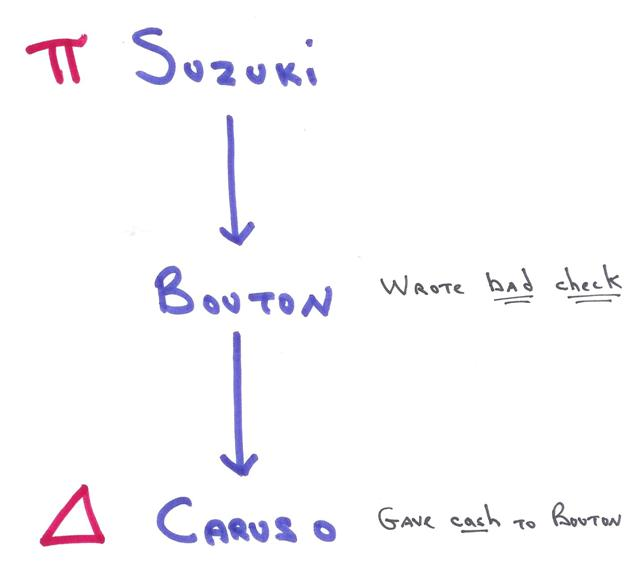 π Suzuki
Bouton Wrote bad check
Δ Caruso Gave cash to Bouton